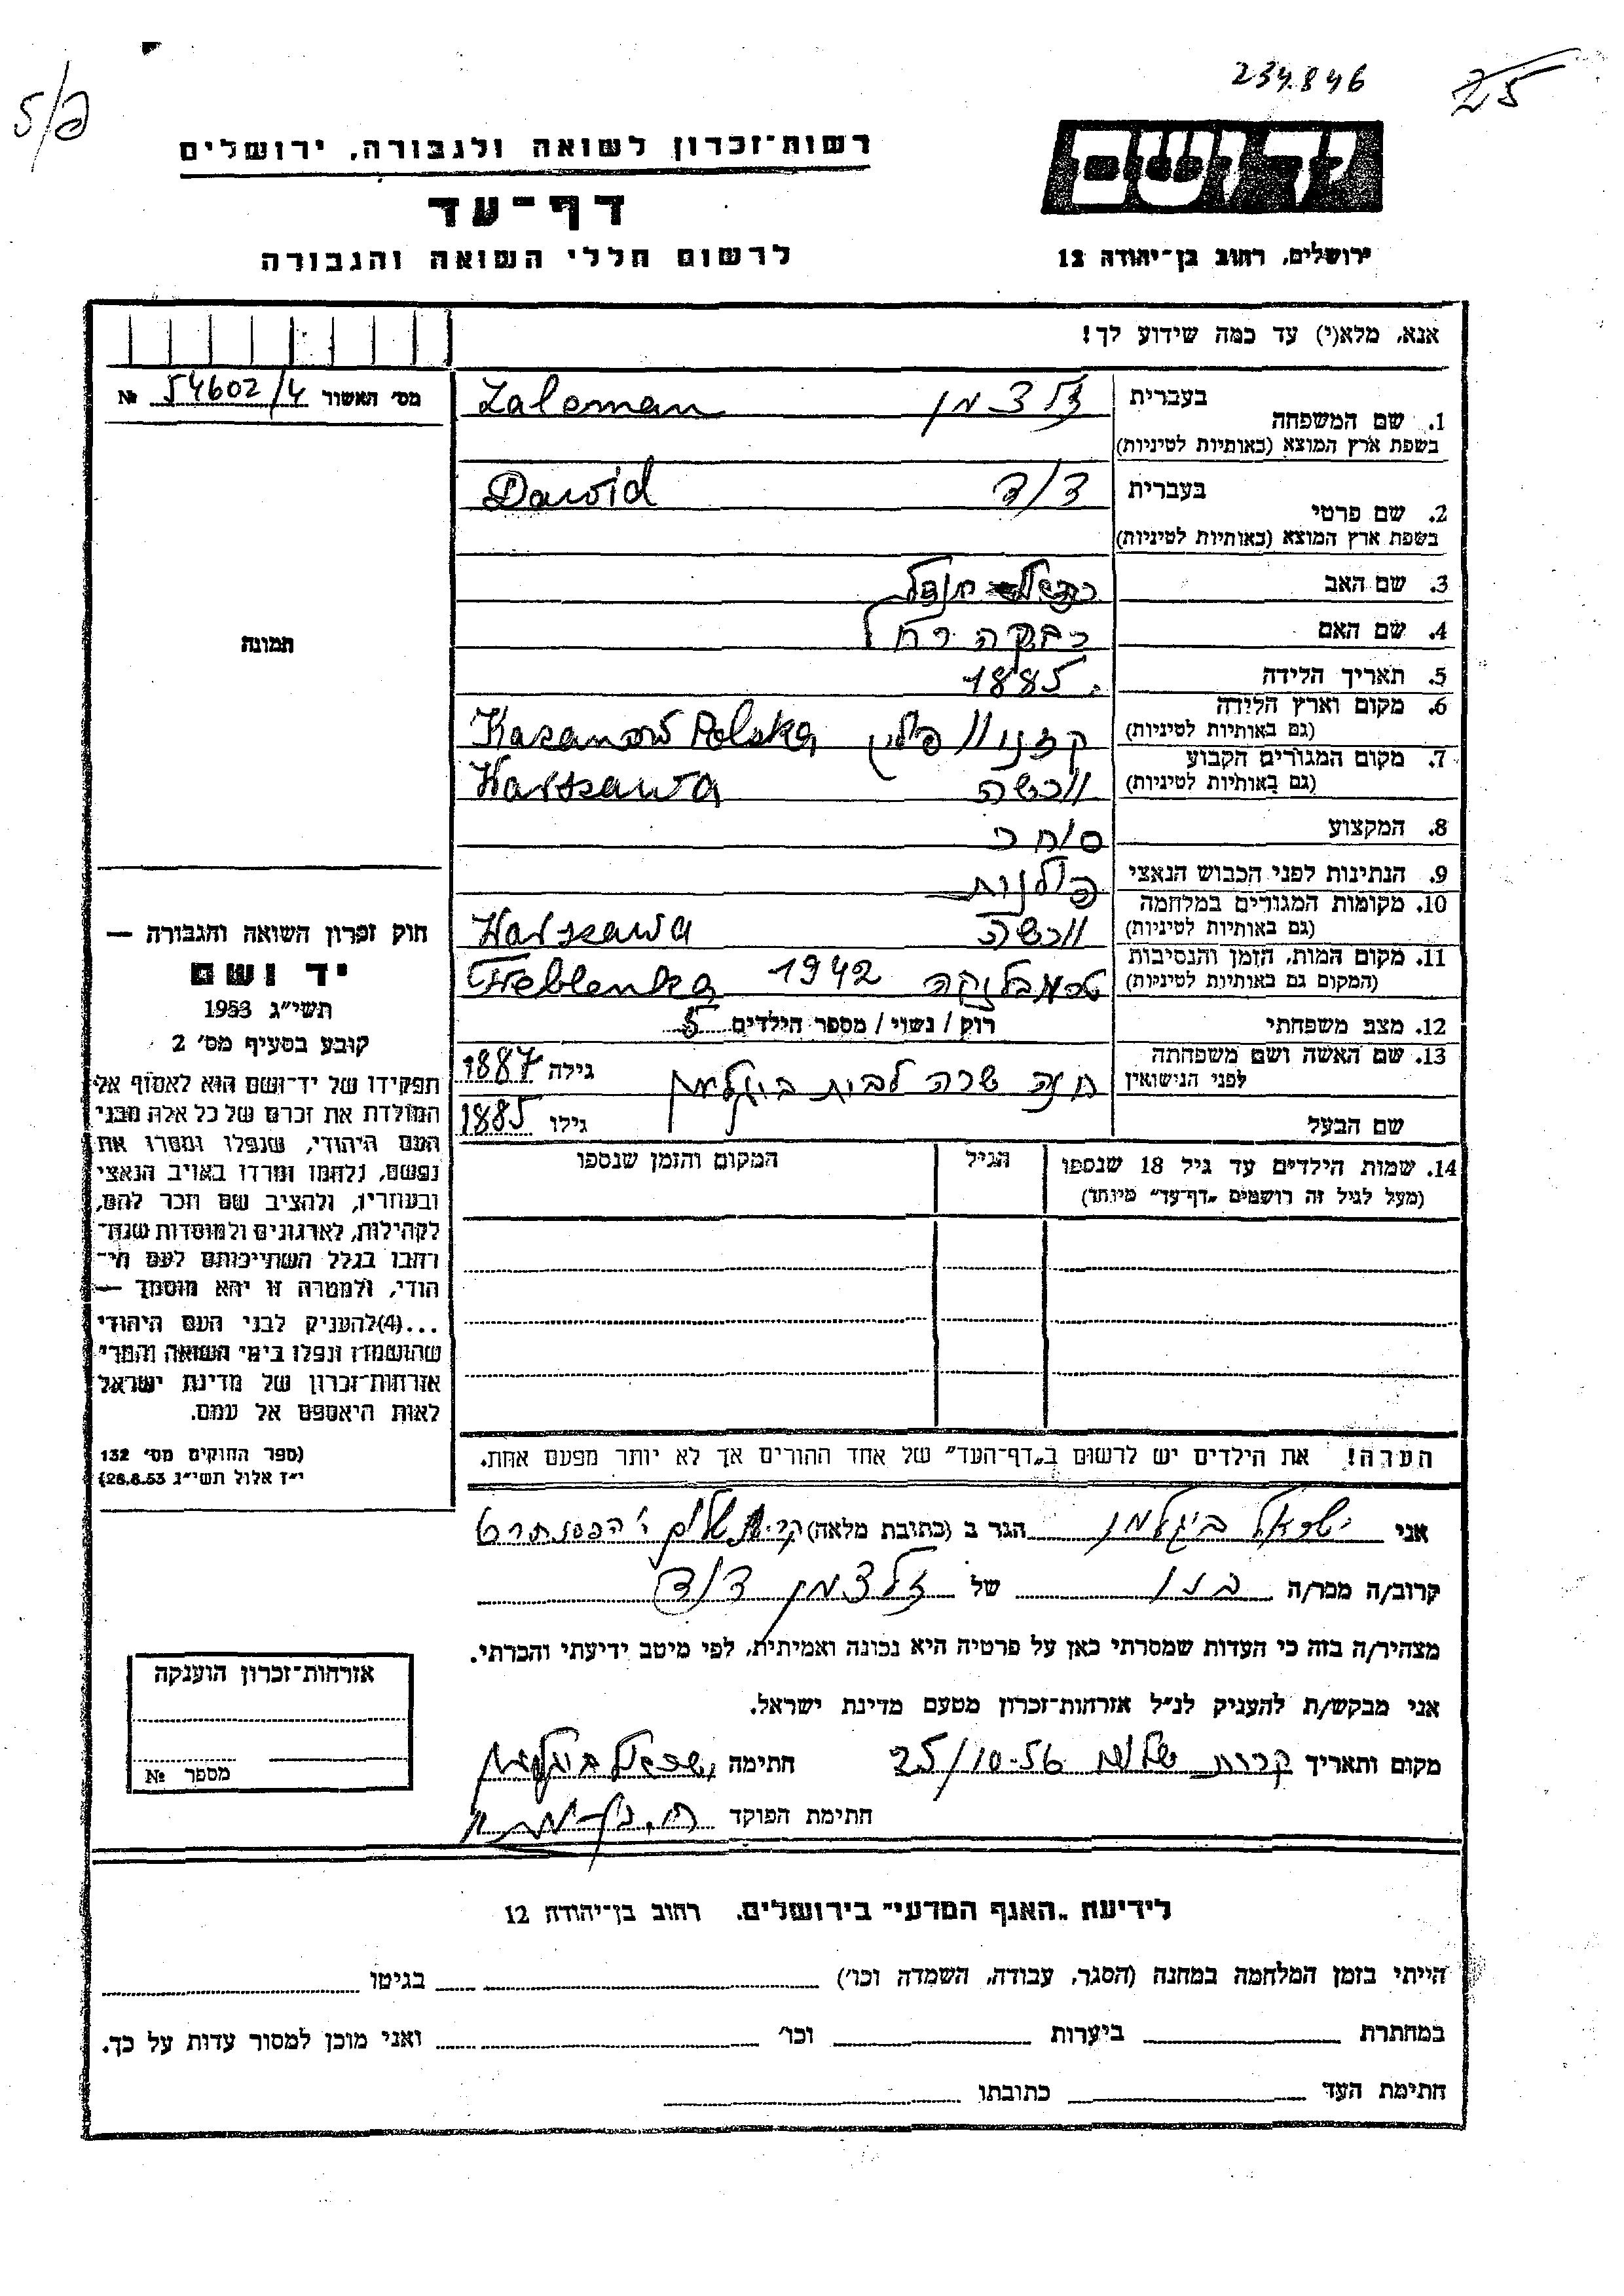 234.846
25
רשות־זכרון לשואה ולגבורה, ירושלים
יד ושם
דף־עד
לרשום חללי השואה והגבורה
ירושלים, רחוב בן־יהודה 12
אנא, מלא(י) עד כמה שידוע לך!
מס׳ האשור 54602/4 №
1. שם המשפחה
בעברית זלצמן
בשפת ארץ המוצא (באותיות לטיניות) Zalcman
2. שם פרטי
בעברית דוד
בשפת ארץ המוצא (באותיות לטיניות) Dawid
3. שם האב
4. שם האם רבקה רחל
5. תאריך הלידה 1885
6. מקום וארץ הלידה
(גם באותיות לטיניות) קזנוו פולין Kazanów Polska
7. מקום המגורים הקבוע
(גם באותיות לטיניות) וורשה Warszawa
8. המקצוע סוחר
9. הנתינות לפני הכבוש הנאצי פולנית
10. מקומות המגורים במלחמה
(גם באותיות לטיניות) וורשה Warszawa
11. מקום המות, הזמן והנסיבות
(המקום גם באותיות לטיניות) טרמבלינקה 1942 Treblenka
12. מצב משפחתי רוק / נשוי / מספר הילדים 5
13. שם האשה ושם משפחתה
לפני הנישואין חיה שרה לבית ביגלמן גילה 1887
שם הבעל גילו 1885
14. שמות הילדים עד גיל 18 שנספו
(מעל לגיל זה רושמים „דף־עד״ מיוחד)
הגיל
המקום והזמן שנספו
הערה! את הילדים יש לרשום ב„דף־העד״ של אחד ההורים אך לא יותר מפעם אחת.
תמונה
חוק זכרון השואה והגבורה —
יד ושם
תשי״ג 1953
קובע בסעיף מס׳ 2
תפקידו של יד־ושם הוא לאסוף אל
המולדת את זכרם של כל אלה מבני
העם היהודי, שנפלו ומסרו את
נפשם, נלחמו ומרדו באויב הנאצי
ובעוזריו, ולהציב שם וזכר להם,
לקהילות, לארגונים ולמוסדות שנח־
רבו בגלל השתייכותם לעם הי־
הודי, ולמטרה זו יהא מוסמך —
...(4)להעניק לבני העם היהודי
שהושמדו ונפלו בימי השואה והמרי
אזרחות־זכרון של מדינת ישראל
לאות היאספם אל עמם.
(ספר החוקים מס׳ 132
י״ז אלול תשי״ג 28.8.53)
אני ישראל ביגלמן הגר ב (כתובת מלאה)
קרוב/ה מכר/ה בנו של זלצמן דוד
מצהיר/ה בזה כי העדות שמסרתי כאן על פרטיה היא נכונה ואמיתית, לפי מיטב ידיעתי והכרתי.
אני מבקש/ת להעניק לנ״ל אזרחות־זכרון מטעם מדינת ישראל.
מקום ותאריך קרית שלום 25/10-56 חתימה ישראל ביגלמן
חתימת הפוקד
אזרחות־זכרון הוענקה
מספר №
לידיעת „האגף המדעי״ בירושלים, רחוב בן־יהודה 12
הייתי בזמן המלחמה במחנה (הסגר, עבודה, השמדה וכו׳) בגיטו
במחתרת ביערות וכו׳ ואני מוכן למסור עדות על כך.
חתימת העד כתובתו